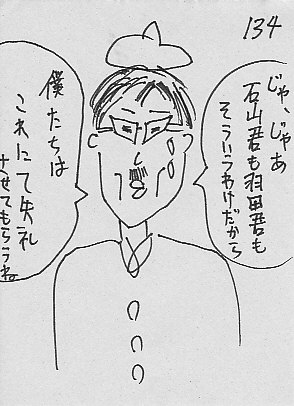 134
じゃ、じゃあ
石山君も羽田君も
そういうわけだから
僕たちは
これにて失礼
させてもらうね